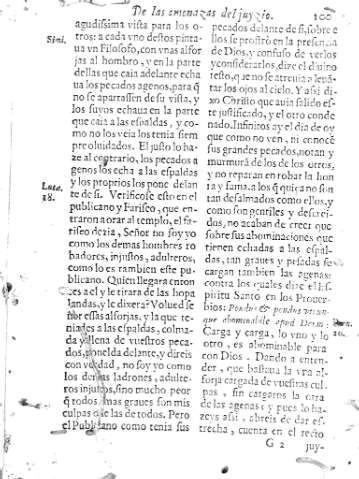 De las amenazas del juyzio. 100
agudissima vista para los o-
tros: a cada vno destos pinta-
Simi. ua vn Filosofo, con vnas alfor
jas al hombro, y en la parte
dellas que caia adelante echa
ua los pecados agenos, para q̃
no se apartassen de su vista, y
los suyos echaua en la parte
que caia a las espaldas, y co-
mo no los veia los tenia siem
pre oluidados. El justo lo ha
ze al contrario, los pecados a
genos los echa a las espaldas
Luca. y los proprios los pone delan
18. te de si. Verificose esto en el
publicano y Fariseo, que en-
traron a orar al templo, el fa-
riseo dezia, Señor no soy yo
como los demas hombres ro
badores, injustos, adulteros,
como lo es tambien este pu-
blicano. Quien llegara enton
ces a el y le tirara de las hopa
landas, y le dixera? Volued se
ñor essas alforjas, y la que te-
niades a las espaldas, colma-
da y llena de vuestros peca-
dos, ponelda delante, y direis
con verdad, no soy yo como
los demas ladrones, adulte-
ros injustos, sino mucho peor
q̃ todos, mas graues son mis
culpas que las de todos. Pero
el Publicano como tenia sus
pecados delante de si, sobre e
llos se prostrò en la presencia
de Dios, y confuso de verlos
y considerarlos, dize el diuino
testo, que no se atreuia a leuã-
tar los ojos al cielo. Y assi di-
xo Christo que auia salido es-
te justificado, y el otro conde
nado. Infinitos ay el dia de oy
que como no ven, ni conocẽ
sus grandes pecados, notan y
murmurã de los de los otros,
y no reparan en robar la hon
ra y fama, a los q̃ quiçà no son
tan desalmados como ellos, y
como son gentiles y descrei-
dos, no acaban de creer que
sobre sus abominaciones que
tienen echadas a las espal-
das, tan graues y pesadas se
cargan tambien las agenas:
contra los quales dize el Es-
piritu Santo en los Prouer-
bios: Pondus & pondus vtrun-
que abominabile apud Deum:
Carga y carga, lo vno y lo
otro, es abominable para
con Dios. Dando a enten-
der, que bastaua la vna al-
forja cargada de vuestras cul-
pas, sin cargaros la otra
de las agenas: y pues lo ha-
zeys assi, abreis de dar es-
trecha, cuenta en el recto
G 2 juy-